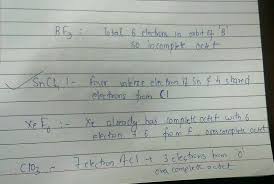 BF3 : Total 6 electrons in orbit of 'B'
so incomplete octet
SnCl4 :- Four valence electron of Sn & 4 shared
electrons from Cl
XeF6 :- Xe already has complete octet with 6
electron & 6 from F, overcomplete octet
ClO2 - 7 electron of Cl + 3 electrons from 'O'
over complete octet